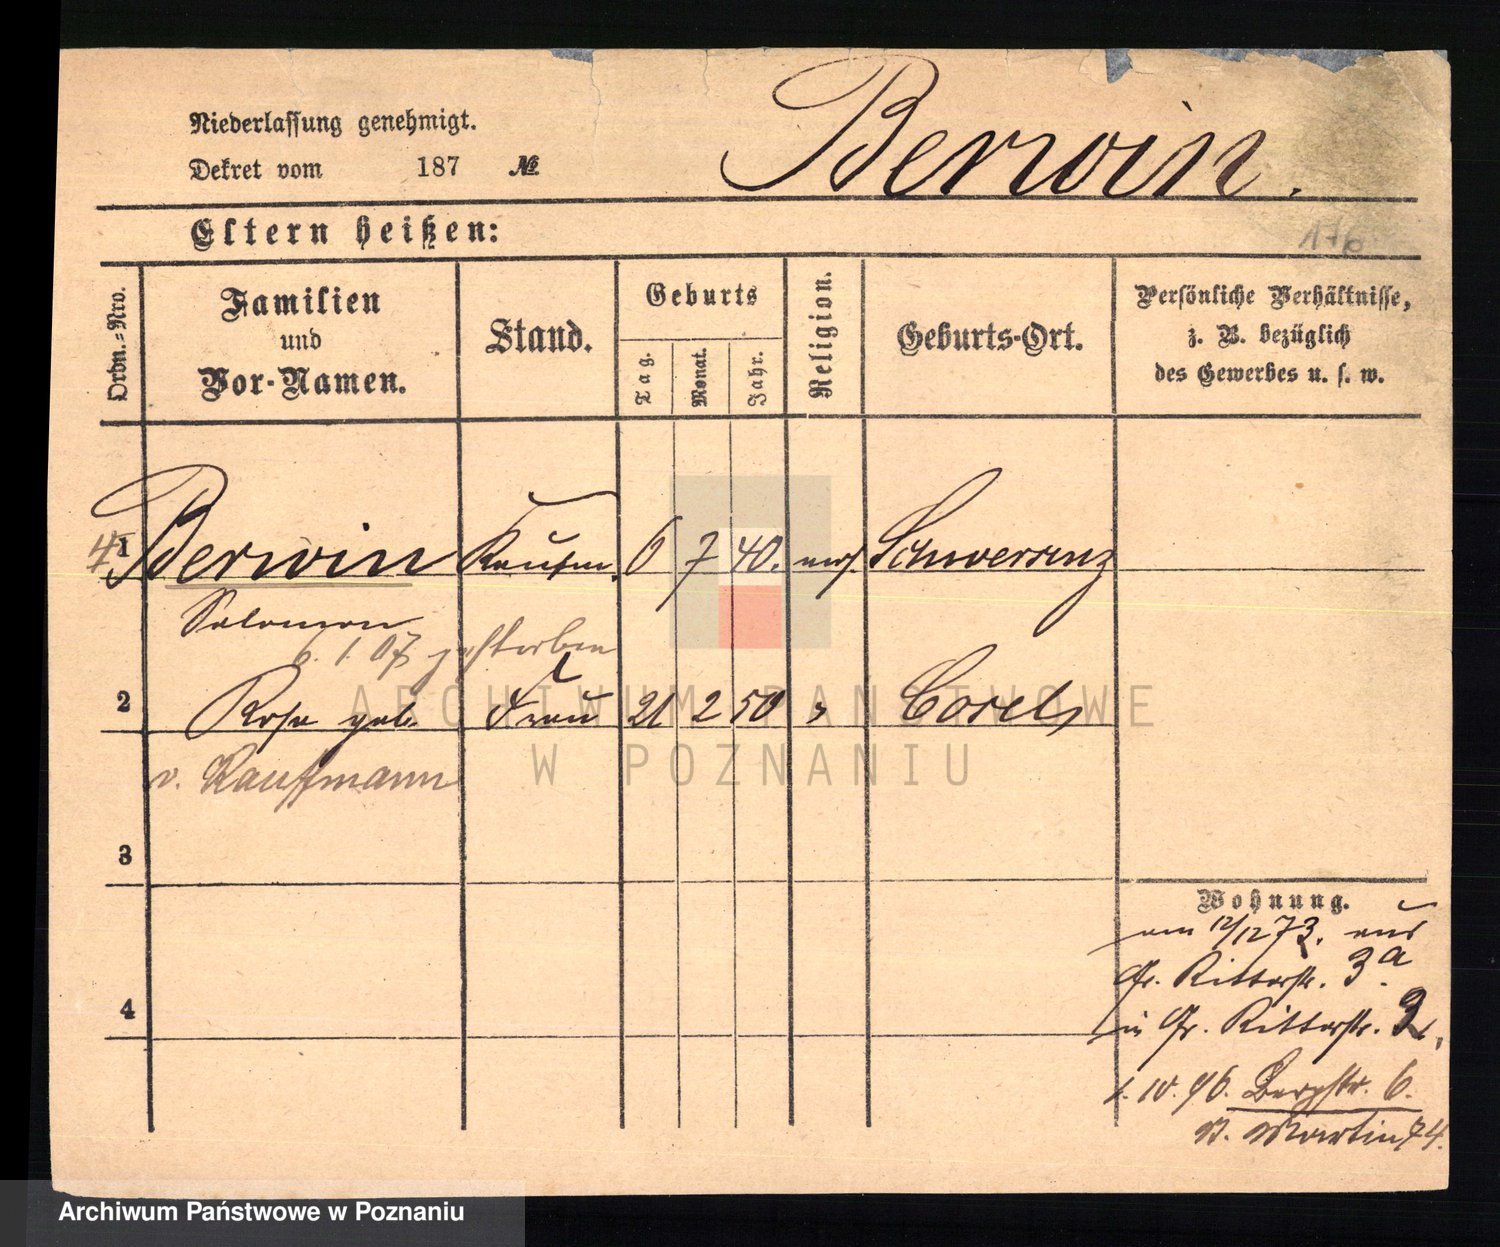 Niederlassung genehmigt.
Dekret vom 187 №
Berwin.
Eltern heißen:
176
Ordn.-Nro.
Familien
und
Vor-Namen.
Stand.
Geburts
Tag.
Monat.
Jahr.
Religion.
Geburts-Ort.
Persönliche Verhältnisse,
z. B. bezüglich
des Gewerbes u. s. w.
1 Berwin Kaufm. 6 7 40. mos. Schwersenz
Salomon
6. 1. 07 gestorben
2 Rosa geb. Frau 21 2 50 "
v. Kauffmann
3
4
Wohnung.
am 12/12 73. aus
Gr. Ritterstr. 3a.
in Gr. Ritterstr. 2,
1. 10. 96. Bergstr. 6.
St. Martin 74.
ARCHIWUM PAŃSTWOWE
W POZNANIU
Archiwum Państwowe w Poznaniu